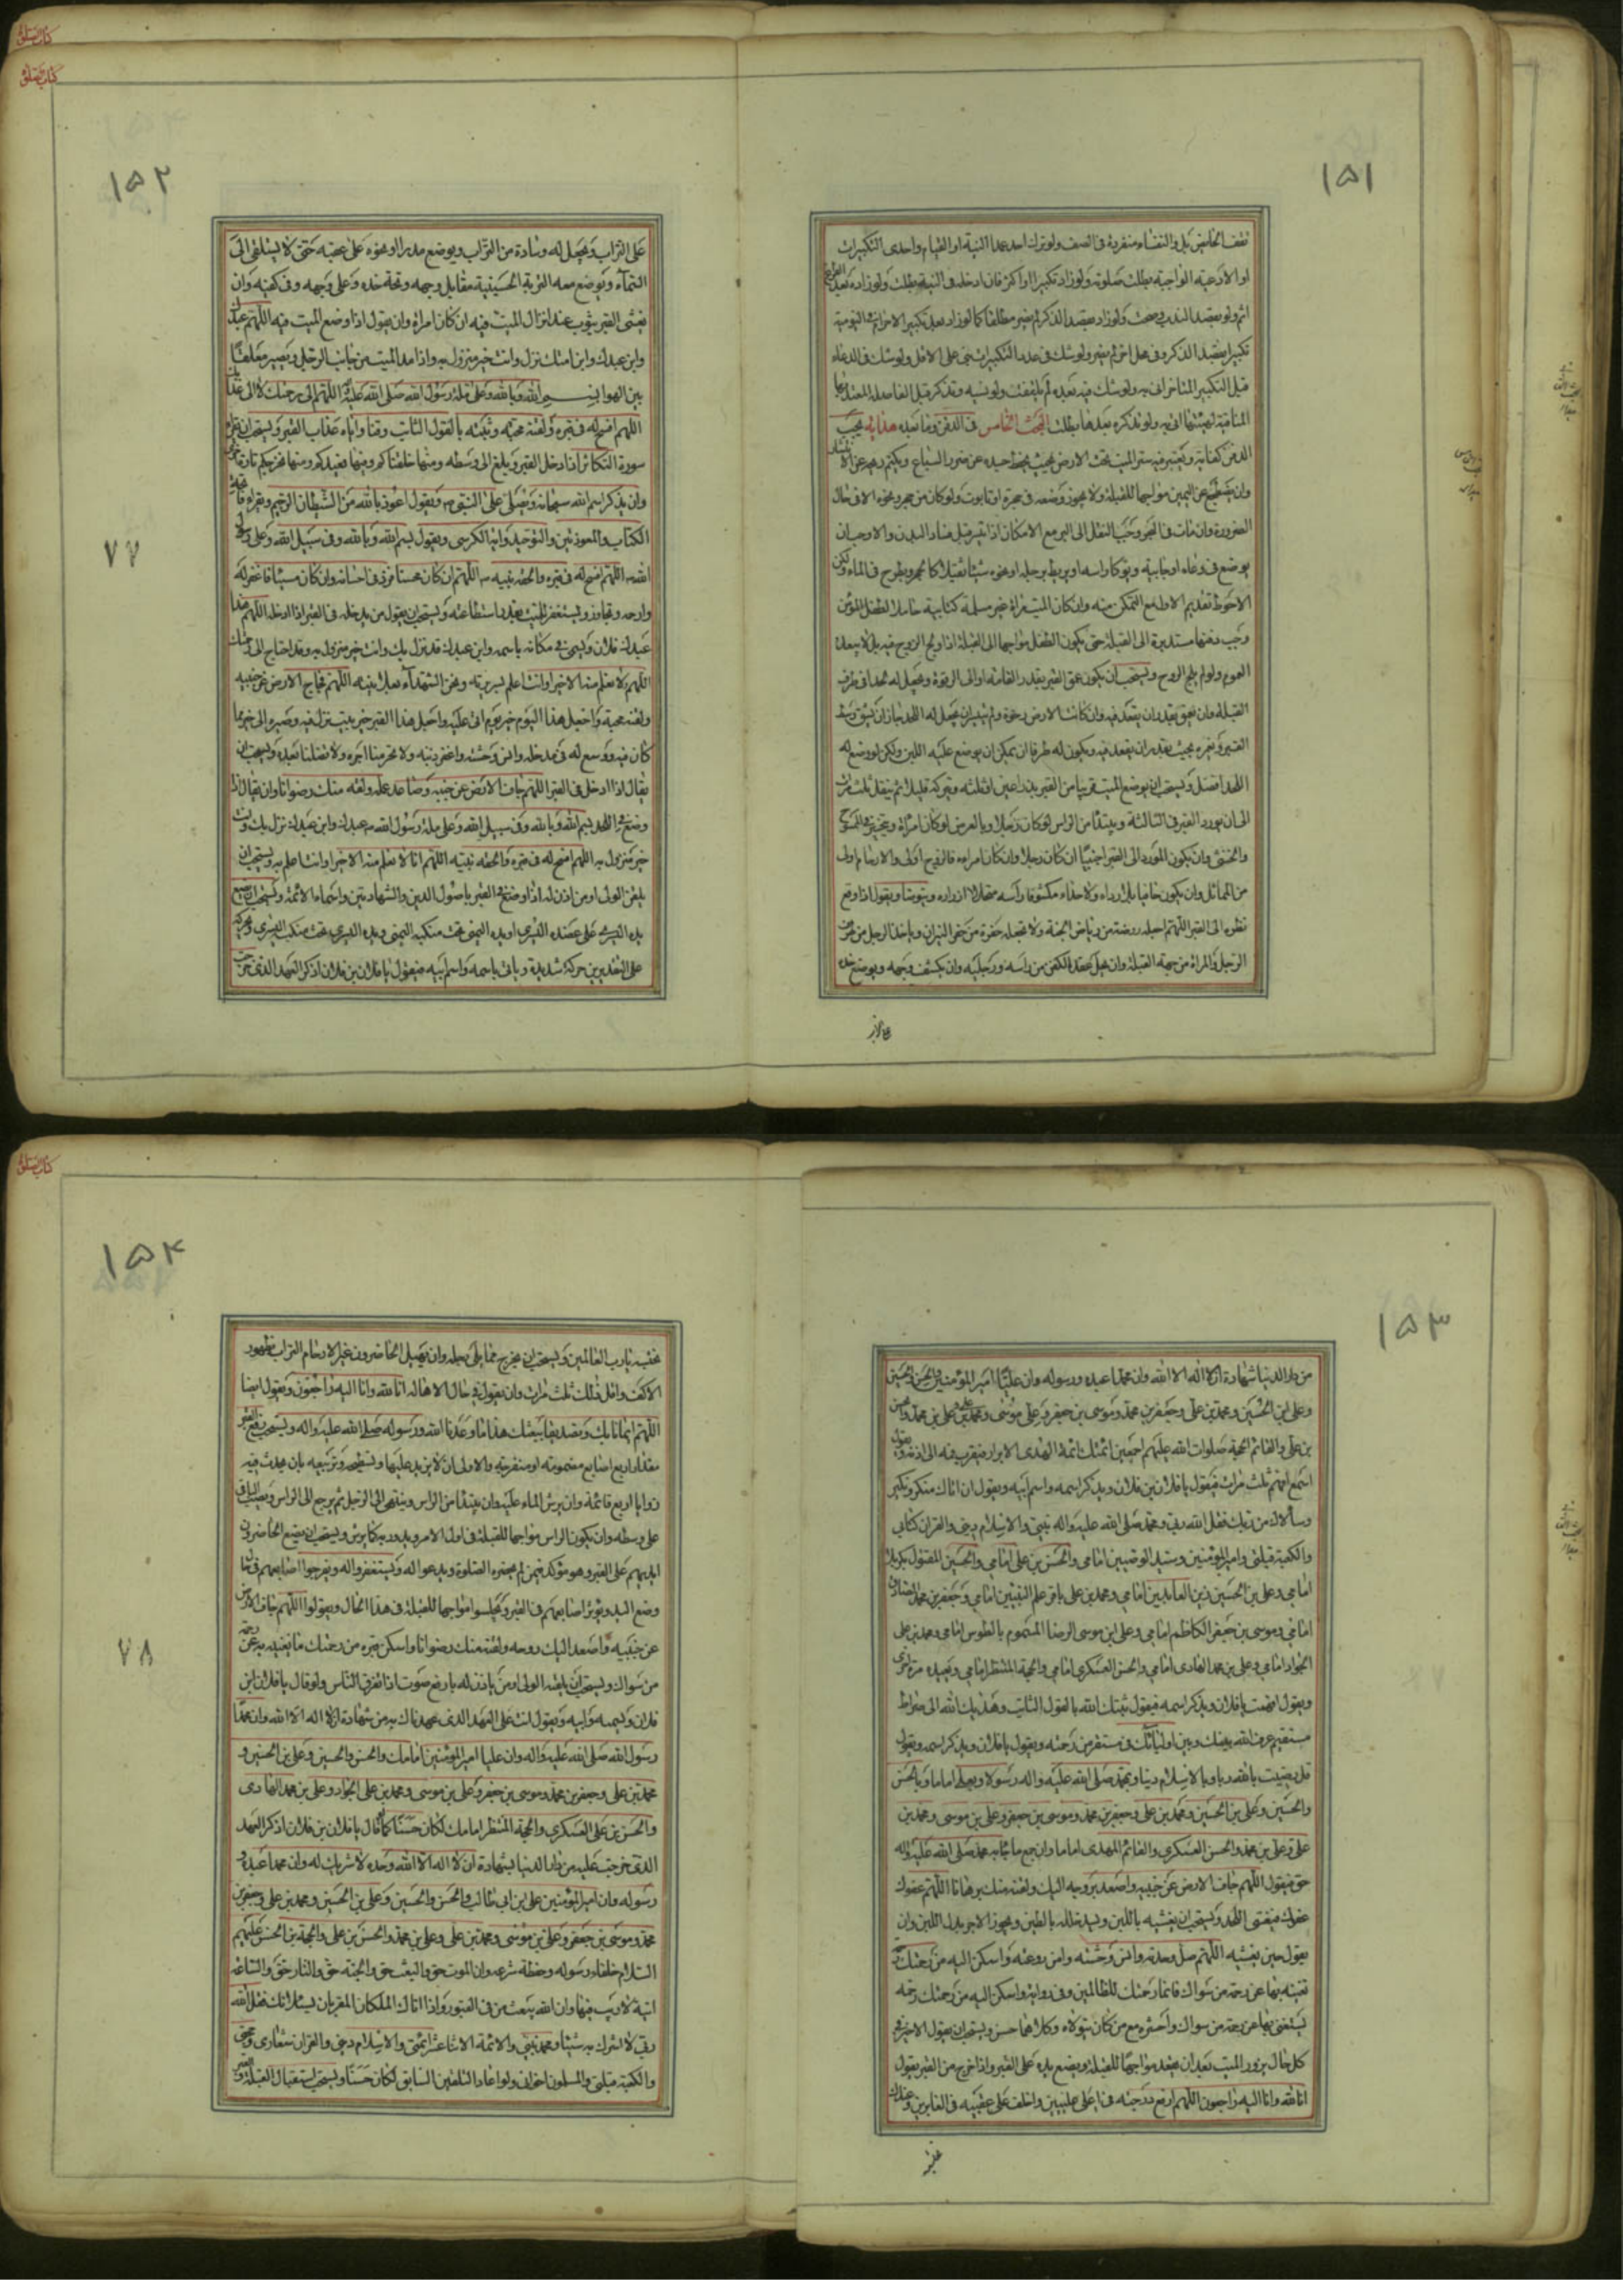 كتاب الصلوة
كتاب الصلوة
١٥١
تقف الحائض بل والنفساء منفردة فى الصف ولو ترك احد عمدا النية او القيام واحدى التكبيرات
او الادعية الواجبة بطلت صلوته ولو زاد تكبيرا او اكثر فان ادخله فى النية بطلت ولو زاده بعد
اثم ولو بقصد الندب صحت ولو زاد بقصد الذكر لم يضر مطلقا كما لو زاد قبل تكبير الاحرام فى اليومية
تكبيرا بقصد الذكر وفى محل اخر لم يضر ولو شك فى عدد التكبيرات بنى على الاقل ولو شك فى الدعاء
قبل التكبير المتاخر اتى به ولو شك فيه بعده لم يلتفت ولو نسيه وتذكر قبل الفاصلة المعتد بها
المنافية لهيئتها اتى به ولو تذكره بعدها بطلت البحث الخامس فى الدفن وما بعده هداية يجب
الدفن كفاية ويعتبر فيه ستر الميت تحت الارض بحيث يحفظ جسده عن ضرر السباع ويكتم ريحه عن الانتشار
وان يضطجع عن اليمين مواليها للقبلة ولا يجوز وضعه فى حجرة او تابوت ولو كان من حجر ونحوه الا فى حال
الضرورة وان مات فى البحر وجب النقل الى البر مع الامكان اذا تيسر قبل فساد البدن والا وجب ان
يوضع فى وعاء او خابية ويوكأ راسه او يربط برجله او نحوه شيئا ثقيلا كالحجر ويطرح فى الماء ولكن
الاحوط تقديم الاول مع التمكن منه وان كان الميت مراة غير مسلمة كتابية حاملا لطفل المؤمن
وجب دفنها مستدبرة الى القبلة حتى يكون الطفل مواجها الى القبلة اذا ولج الروح فيه بل لا يبعد
العموم ولو لم يلج الروح ويستحب ان يكون عمق القبر بقدر القامة او الى الترقوة ويجعل له لحدا فى طرف
القبلة وان يعمق بقدر ان يقعد فيه وان كانت الارض رخوة ولم يتيسر ان يجعل له اللحد جاز ان يشق وسط
القبر ويحفره بحيث يقدر ان يقعد فيه ويكون له طرفا ان يمكن ان يوضع عليه اللبن ولكن لو وضع له
اللحد افضل ويستحب ان يوضع الميت قريبا من القبر بذراعين او ثلثة ويتركه قليلا ثم ينقل ثلث مرات
الى ان يورد القبر فى الثالثة ويبتدأ من الراس لو كان رجلا وبالعرض لو كان امراة ويتخير فى الممسوح
والخنثى وان يكون المورد الى القبر اجنبيا ان كان رجلا وان كان امراة فالزوج اولى والارحام اولى
من المماثل وان يكون حافيا بلا رداء ولا حذاء مكشوفا راسه محللا ازراره ويتوضأ ويقول اذا وقع
نظره الى القبر اللهم اجعله روضة من رياض الجنة ولا تجعله حفرة من حفر النيران وياخذ الرجل من طرف
الرجل والمراة من جهة القبلة وان يحل عقد الكفن من راسه ورجليه وان يكشف وجهه ويوضع خده
١٥٢
على التراب ويجعل له وسادة من التراب ويوضع مدرا او نحوه على عقبه حتى لا يستلقى الى
السماء ويوضع معه التربة الحسينية مقابل وجهه وتحت خده وعلى وجهه وفى كفنه وان
يغشى القبر بثوب عند انزال الميت فيه ان كان امراة وان يقول اذا وضع الميت فيه اللهم عبدك
وابن عبدك وابن امتك نزل وانت خير منزول به واذا مد الميت من جانب الرجل ويصير معلقا
بين الهواء بسم الله وبالله وعلى ملة رسول الله صلى الله عليه اللهم الى رحمتك لا الى عذابك
اللهم افسح له فى قبره ولقنه حجته وثبته بالقول الثابت وقنا واياه عذاب القبر ويستحب ان يقرا
سورة التكاثر اذا دخل القبر ويبلغ الى وسطه ومنها خلقناكم وفيها نعيدكم ومنها نخرجكم تارة اخرى
وان يذكر اسم الله سبحانه ويصلى على النبى ص ويقول اعوذ بالله من الشيطان الرجيم ويقراء فاتحة
الكتاب والمعوذتين والتوحيد واية الكرسى ويقول بسم الله وبالله وفى سبيل الله وعلى ملة رسول
الله ص اللهم افسح له فى قبره والحقه بنبيه ص اللهم ان كان محسنا فزد فى احسانه وان كان مسيئا فاغفر له
وارحمه وتجاوز ويستغفر للميت بقدر استطاعته ويستحب ان يقول من يدخله فى القبر اذا ادخله اللهم هذا
عبدك فلان ويسمى فى مكانه باسمه وابن عبدك قد نزل بك وانت خير منزول به وقد احتاج الى رحمتك
اللهم ولا نعلم منه الا خيرا وانت اعلم بسريرته ونحن الشهداء بعلانيته اللهم فجاف الارض عن جنبيه
ولقنه حجته واجعل هذا اليوم خير يوم اتى عليه واجعل هذا القبر خير بيت نزل فيه وصيره الى خير مما
كان فيه ووسع له فى مدخله وانس وحشته واغفر ذنبه ولا تحرمنا اجره ولا تضلنا بعده ويستحب ان
يقال اذا ادخل فى القبر اللهم جاف الارض عن جنبيه وصاعد عمله ولقه منك رضوانا وان يقال اذا
وضع فى اللحد بسم الله وبالله وفى سبيل الله وعلى ملة رسول الله ص عبدك وابن عبدك نزل بك وانت
خير منزول به اللهم افسح له فى قبره والحقه بنبيه اللهم انا لا نعلم منه الا خيرا وانت اعلم به ويستحب ان
يلقن الولى او من اذن له اذا وضع فى القبر باصول الدين والشهادتين واسماء الائمة ويستحب ان يضع
يده اليسرى على عضده اليسرى او يده اليمنى تحت منكبه اليمنى ويده اليسرى تحت منكب اليسرى ويحركه
على التقديرين حركة شديدة وياتى باسمه واسم ابيه فيقول يا فلان بن فلان اذكر العهد الذى خرجت
٧٧
كتاب الصلوة
١٥٣
من دار الدنيا شهادة ان لا اله الا الله وان محمدا عبده ورسوله وان عليا امير المؤمنين والحسن والحسين
وعلى ابن الحسين ومحمد بن على وجعفر بن محمد وموسى بن جعفر وعلى بن موسى ومحمد بن على وعلى بن محمد والحسن
بن على والقائم الحجة صلوات الله عليهم اجمعين ائمتك ائمة الهدى الابرار فيقرب فمه الى اذنه ويقول
اسمع افهم ثلث مرات فيقول يا فلان بن فلان ويذكر اسمه واسم ابيه ويقول ان اتاك منكر ونكير
وسألاك من ربك فقل الله ربى ومحمد صلى الله عليه واله نبيى والاسلام دينى والقران كتابى
والكعبة قبلتى وامير المؤمنين وسيد الوصيين امامى والحسن بن على امامى والحسين المقتول بكربلا
امامى وعلى بن الحسين زين العابدين امامى ومحمد بن على باقر علم النبيين امامى وجعفر بن محمد الصادق
امامى وموسى بن جعفر الكاظم امامى وعلى ابن موسى الرضا المسموم بالطوس امامى ومحمد بن على
الجواد امامى وعلى بن محمد الهادى امامى والحسن العسكرى امامى والحجة المنتظر امامى ويعيده مرة اخرى
ويقول افهمت يا فلان ويذكر اسمه فيقول ثبتك الله بالقول الثابت وهداك الله الى صراط
مستقيم عرف الله بينك وبين اوليائك فى مستقر من رحمته ويقول يا فلان ويذكر اسمه ويقول
قل رضيت بالله ربا وبالاسلام دينا وبمحمد صلى الله عليه واله رسولا وبعلى اماما وبالحسن
والحسين وعلى بن الحسين ومحمد بن على وجعفر بن محمد وموسى بن جعفر وعلى بن موسى ومحمد بن
على وعلى بن محمد والحسن العسكرى والقائم المهدى اماما وان جميع ما جاء به محمد صلى الله عليه واله
حق فيقول اللهم جاف الارض عن جنبيه واصعد بروحه اليك ولقنه منك برهانا اللهم عفوك
عفوك فيغشى اللحد ويستحب ان يغشيه باللبن ويسد خلله بالطين ويجوز الاجر بدل اللبن وان
يقول حين يغشيه اللهم صل وحدته وانس وحشته وامن روعته واسكن اليه من رحمتك رحمة
تغنيه بها عن رحمة من سواك فانما رحمتك للظالمين وفى رواية واسكن اليه من رحمتك رحمة
يستغنى بها عن رحمة من سواك واحشره مع من كان يتولاه وكلاهما حسن ويستحب ان يقول الاخير فى
كل حال يزور الميت بعد ان يقعد مواجها للقبلة ويضع يده على القبر واذا خرج من القبر يقول
انا لله وانا اليه راجعون اللهم ارفع درجته فى اعلى عليين واخلف على عقبيه فى الغابرين وعندك
١٥٤
نحتسبه يا رب العالمين ويستحب ان يخرج مما يلى رجله وان يهيل الحاضرون غير الارحام التراب بظهور
الاكف واقل ذلك ثلث مرات وان يقول فى حال الاهالة انا لله وانا اليه راجعون ويقول ايضا
اللهم ايمانا بك وتصديقا ببعثك هذا ما وعدنا الله ورسوله صلى الله عليه واله ويستحب رفع القبر
مقدار اربع اصابع مضمومة او منفرجة والاولى ان لا يزيد عليها وتسطيحه وتربيعه بان يحدث فيه
زوايا اربع قائمة وان يرش الماء عليه وان يبتدأ من الراس وينتهى الى الرجل ثم يرجع الى الراس ويصب الباقى
على وسطه وان يكون الراس مواجها للقبلة فى اول الامر ويدور به كما يرش ويستحب ان يضع الحاضرون
ايديهم على القبر وهو مؤكد فيمن لم يحضره الصلوة ويدعو اله ويستغفروا له ويفرجوا اصابعهم فى حال
وضع اليد ويؤثر اصابعهم فى القبر ويجلسوا مواجها للقبلة فى هذا الحال ويقولوا اللهم جاف الارض
عن جنبيه واصعد اليك روحه ولقنه منك رضوانا واسكن قبره من رحمتك ما تغنيه به عن رحمة
من سواك ويستحب ان يلقنه الولى او من ياذن له بارفع صوت اذا تفرق الناس ولو قال يا فلان ابن
فلان ويسميه وابيه ويقول انت على العهد الذى عهدناك به من شهادة ان لا اله الا الله وان محمدا
رسول الله صلى الله عليه واله وان عليا امير المؤمنين امامك والحسن والحسين وعلى بن الحسين و
محمد بن على وجعفر بن محمد وموسى بن جعفر وعلى بن موسى ومحمد بن على الجواد وعلى بن محمد الهادى
والحسن بن على العسكرى والحجة المنتظر امامك لكان حسنا كما لو قال يا فلان بن فلان اذكر العهد
الذى خرجت عليه من دار الدنيا بشهادة ان لا اله الا الله وحده لا شريك له وان محمدا عبده و
رسوله وان امير المؤمنين على بن ابى طالب والحسن والحسين وعلى بن الحسين ومحمد بن على وجعفر بن
محمد وموسى بن جعفر وعلى بن موسى ومحمد بن على وعلى بن محمد والحسن بن على والحجة بن الحسن عليهم
السلام خلفاء رسوله وحفظة شرعه وان الموت حق والبعث حق والجنة حق والنار حق والساعة
اتية لا ريب فيها وان الله يبعث من فى القبور واذا اتاك الملكان المقربان يسئلانك فقل الله
ربى لا اشرك به شيئا ومحمد نبيى والائمة الاثنا عشر ائمتى والاسلام دينى والقران شعارى وحجتى
والكعبة قبلتى والمسلمون اخوانى ولو اعاد التلقين السابق لكان حسنا ويستحب استقبال القبلة
٧٨